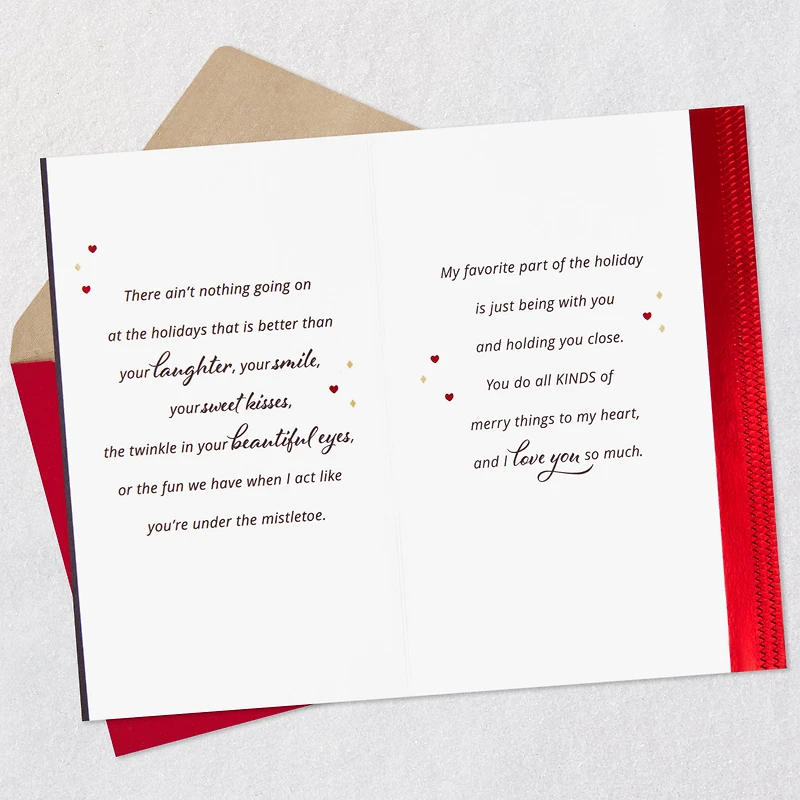 There ain't nothing going on
at the holidays that is better than
your laughter, your smile,
your sweet kisses,
the twinkle in your beautiful eyes,
or the fun we have when I act like
you're under the mistletoe.
My favorite part of the holiday
is just being with you
and holding you close.
You do all KINDS of
merry things to my heart,
and I love you so much.